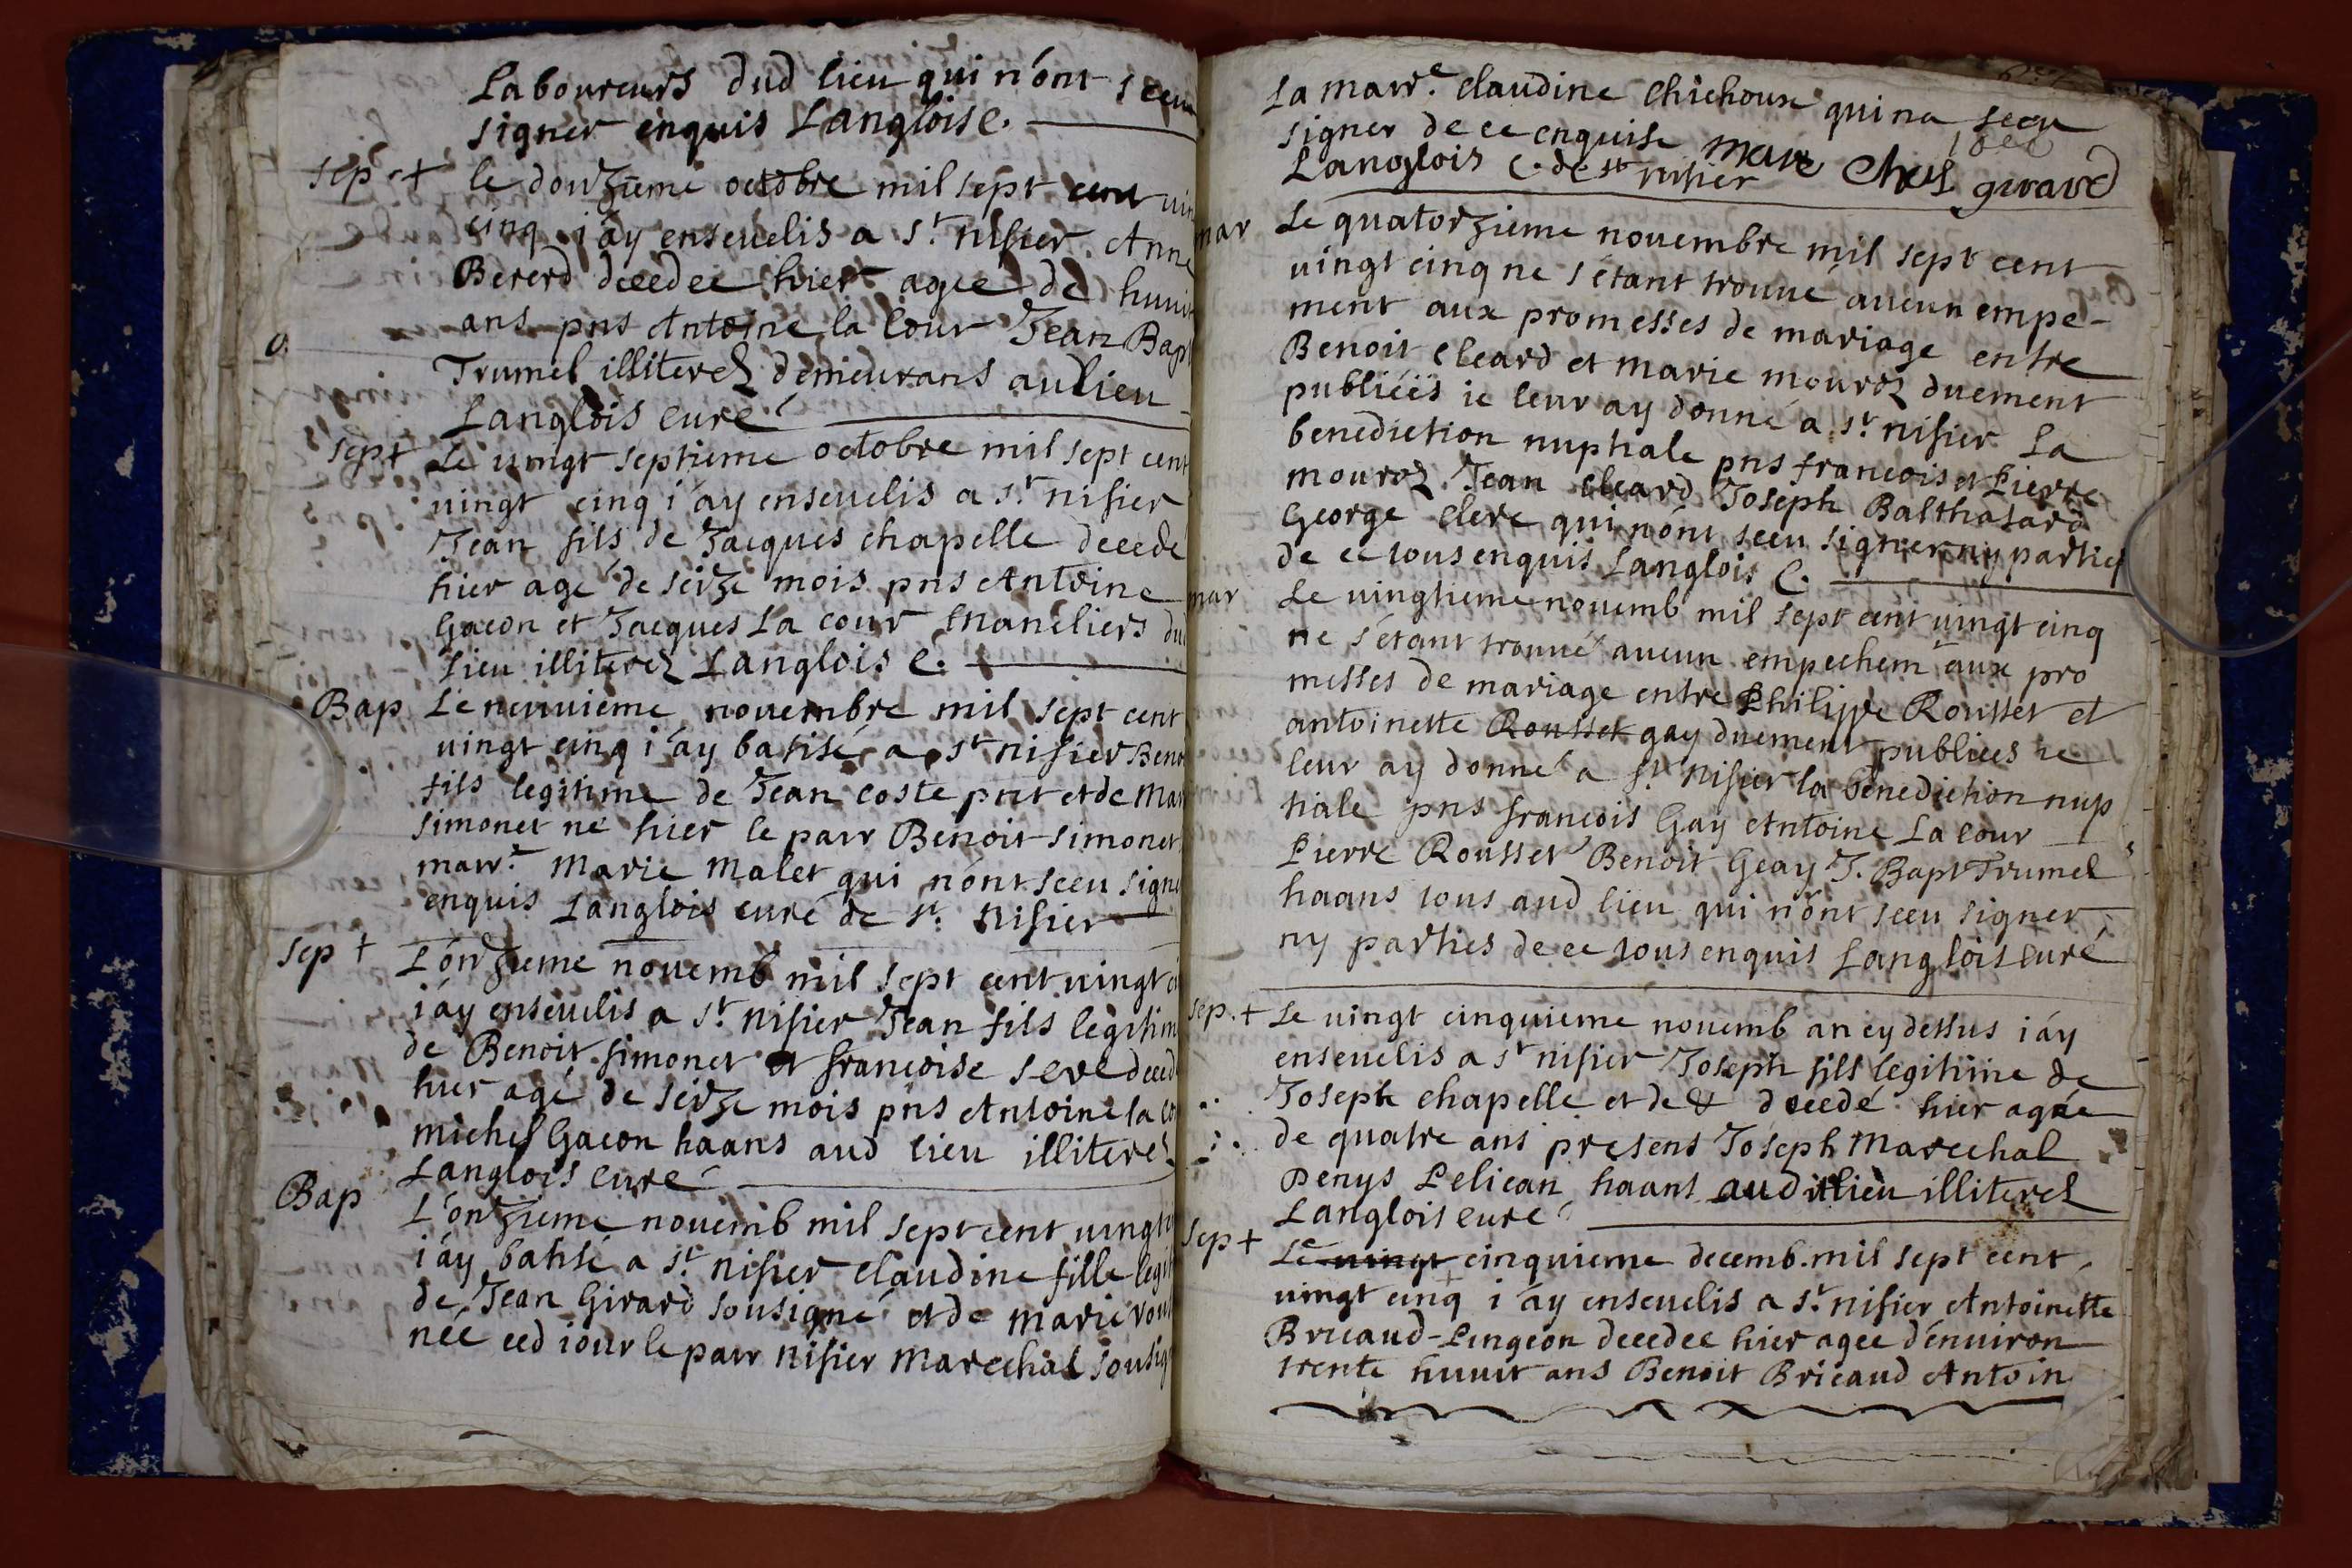 Laboureurs dud lieu qui n'ont sceu
signer enquis Langlois C.
sep + le douzieme octobre mil sept cent vin
cinq i'ay enseuelis a st. nisier Anne
Bererd decedee hier agee de huict
ans pns Antoine la Cour Jean Bapt
Trumel illiterez demeurans audlieu
Langlois curé
sep + Le uingt septieme octobre mil sept cent
uingt cinq i'ay enseuelis a st. nisier
Jean fils de Jacques chapelle decede
hier agé de seize mois pns Antoine
Gacon et Jacques La cour Manéliers du
lieu illiterez Langlois C.
Bap Le neuuieme nouembre mil sept cent
uingt cinq i'ay batisé a st nisier Beno
fils legitime de Jean Coste pnt et de Mar
simonet né hier le parr Benoit simonet
marr.e Marie Malet qui n'ont sceu signe
enquis Langlois curé de st. Nisier
sep + L'onzieme nouemb mil sept cent uingt ci
i'ay enseuelis a st. nisier Jean fils legitim
de Benoit simonet et francoise seve deced
hier agé de seize mois pns Antoine la Co
michel Gacon haans aud lieu illiterez
Langlois Curé
Bap L'onzieme nouemb mil sept cent uingt
i'ay batisé a st. nisier Claudine fille legit
de Jean Girard sousigné et de marie rou
née ced iour le parr nisier Marechal sousig
La marr.e Claudine Chichoux qui na sceu
signer de ce enquise
Langlois C. de st nisier mare Chal girard
mar Le quatorzieme nouembre mil sept cent
uingt cinq ne s'etant trouué aucun empe-
ment aux promesses de mariage entre
Benoit Cleard et marie mouroz duement
publiées ie leur ay donné a st. nisier La
benediction nuptiale pns francois et Pierre
mouroz Jean Cleard Joseph Balthasard
George Clerc qui n'ont sceu signer ny parties
de ce tous enquis Langlois C.
mar Le uingtieme nouemb mil sept cent uingt cinq
ne s'etant trouué aucun empechem aux pro
messes de mariage entre Philippe Rousset et
antoinette Rousset gay duement publiees ie
leur ay donné a st. Nisier la benediction nup
tiale pns francois Gay Antoine La Cour
Pierre Rousset Benoit Geay J. Bapt Trumel
haans tous aud lieu qui n'ont sceu signer
ny parties de ce tous enquis Langlois Curé
sep. + Le uingt cinquieme nouemb an cy dessus i'ay
enseuelis a st nisier Joseph fils legitime de
Joseph chapelle et de & decedé hier agée
de quatre ans presens Joseph Marechal
Denys Pelican haans auditlieu illiterez
Langlois curé
sep + Le uingt cinquieme decemb. mil sept cent
uingt cinq i'ay enseuelis a st. nisier Antoinette
Bricaud-Pingeon decedee hier agee d'enuiron
trente huuit ans Benoit Bricaud Antoin